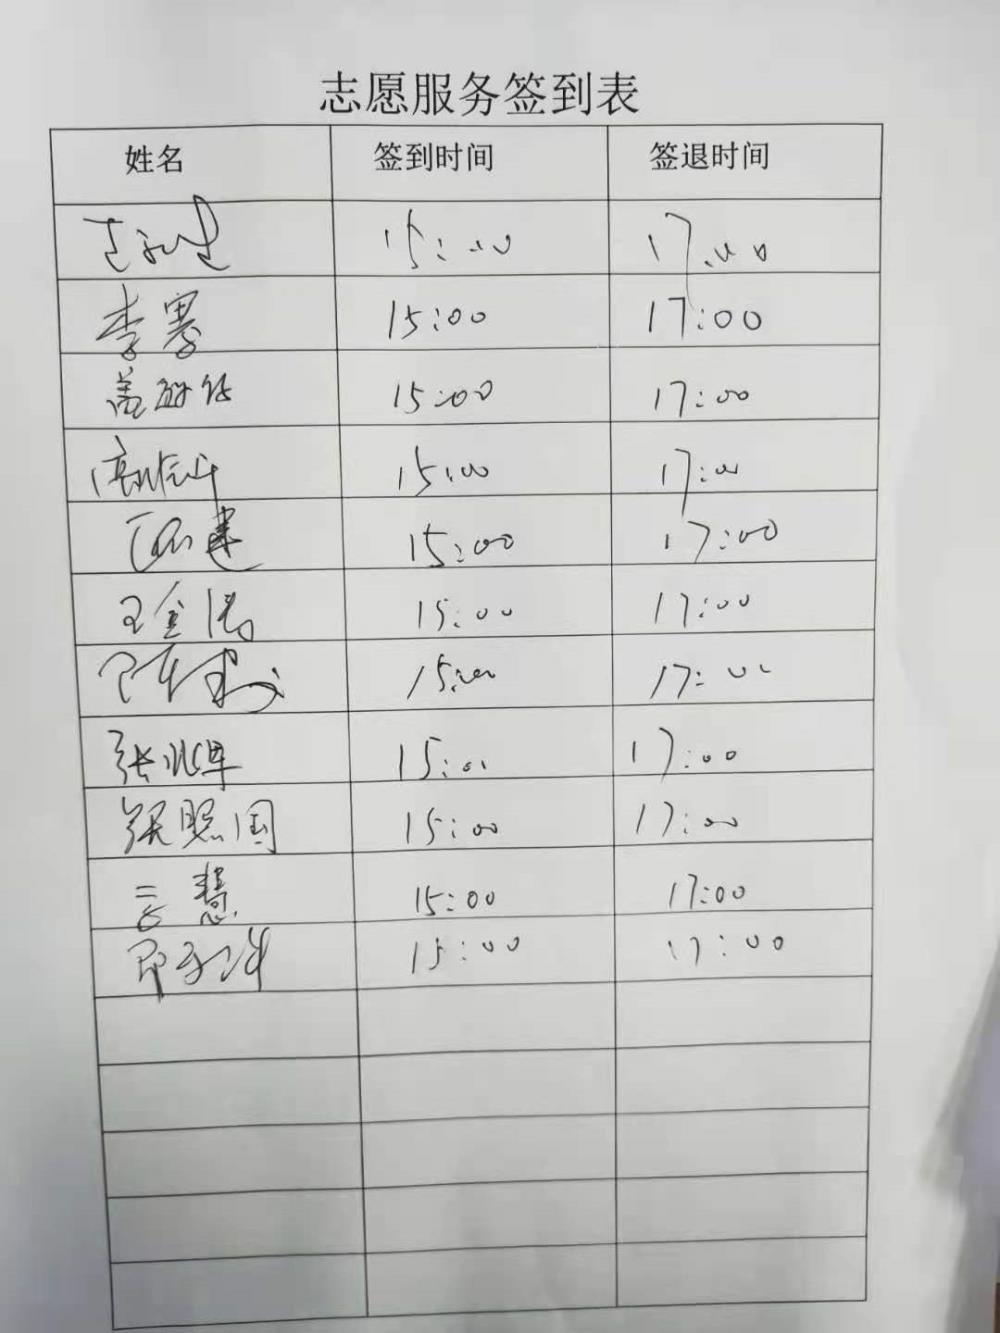 志愿服务签到表
姓名 签到时间 签退时间
15:00 17:00
李骞 15:00 17:00
15:00 17:00
15:00 17:00
15:00 17:00
王金涛 15:00 17:00
15:00 17:00
张兆军 15:00 17:00
张照国 15:00 17:00
云慧 15:00 17:00
15:00 17:00